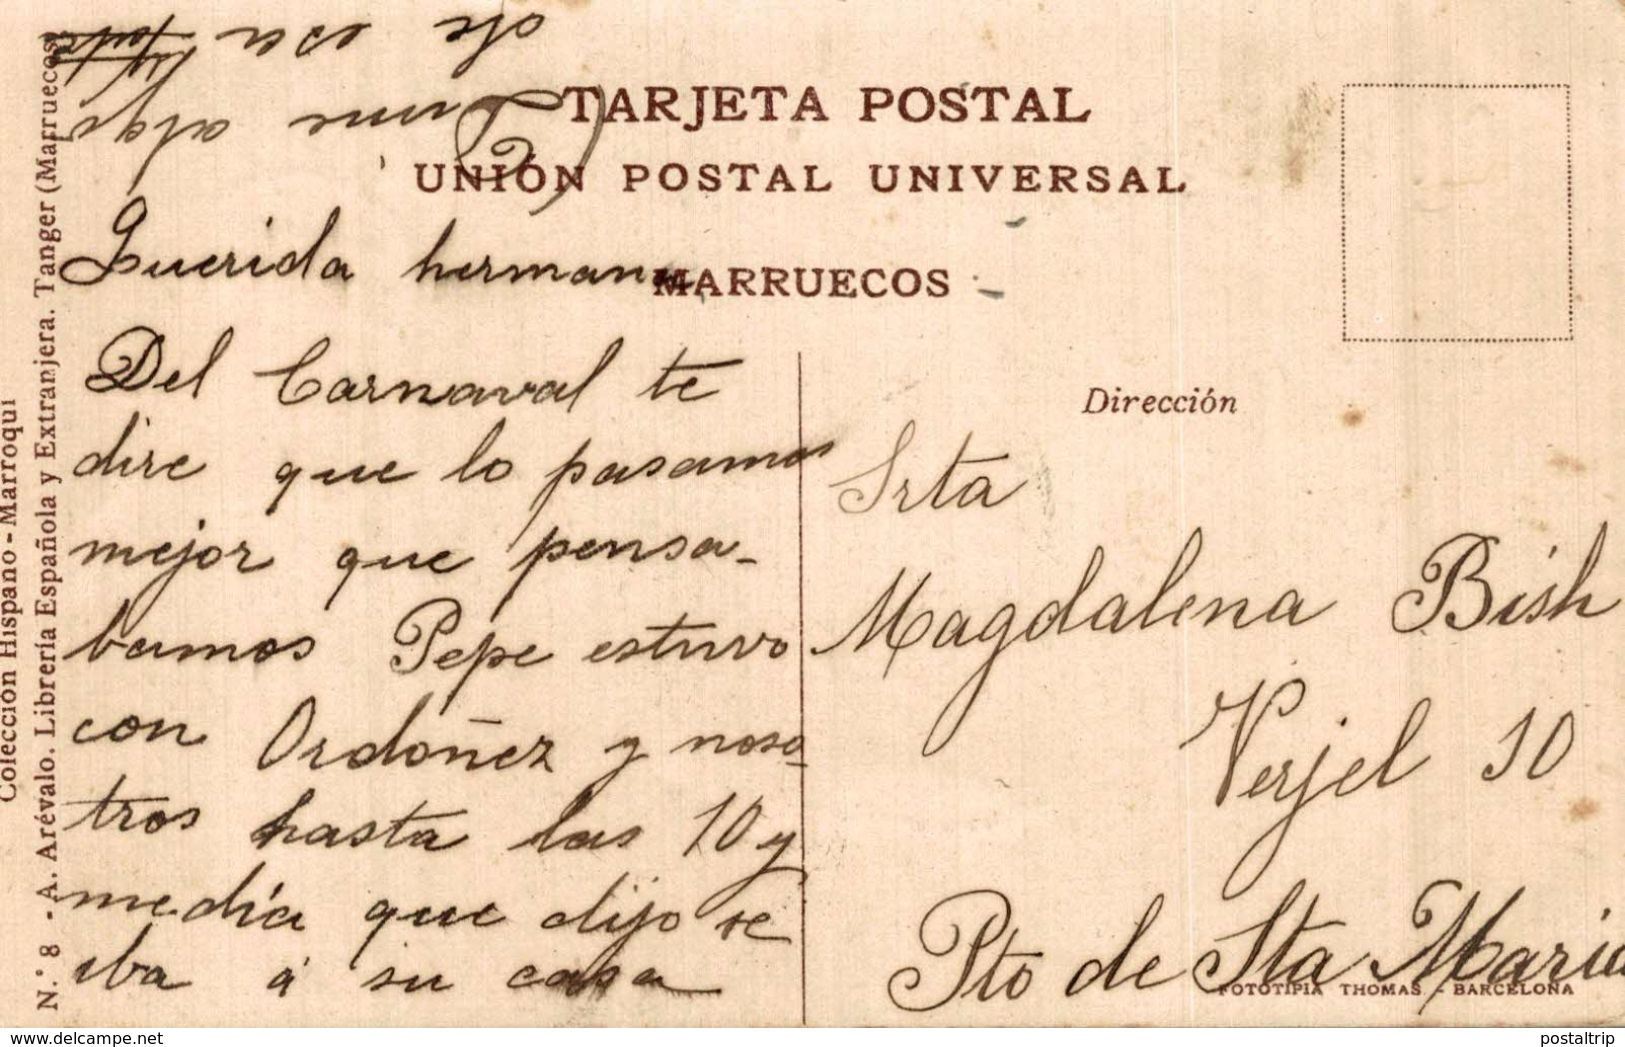 TARJETA POSTAL
UNIÓN POSTAL UNIVERSAL
MARRUECOS
Dirección
Colección Hispano - Marroquí
N.° 8 - A. Arévalo. Librería Española y Extranjera. Tanger (Marruecos)
Querida hermana
Del Carnaval te
dire que lo pasamos
mejor que pensa-
bamos Pepe estuvo
con Ordoñez y noso-
tros hasta las 10 y
media que dijo se
iba á su casa
Dime algo
de esa
Srta
Magdalena Bish
Verjel 10
Pto de Sta Maria
FOTOTIPIA THOMAS - BARCELONA
https://www.delcampe.net
postaltrip